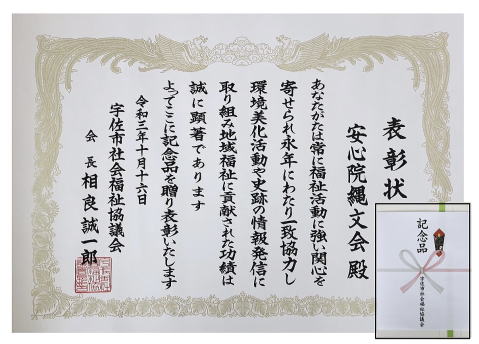 表彰状
安心院縄文会殿
あなたがたは常に福祉活動に強い関心を
寄せられ永年にわたり一致協力し
環境美化活動や史跡の情報発信に
取り組み地域福祉に貢献された功績は
誠に顕著であります
よってここに記念品を贈り表彰いたします
令和三年十月十六日
宇佐市社会福祉協議会
会長 相良誠一郎
記念品
宇佐市社会福祉協議会